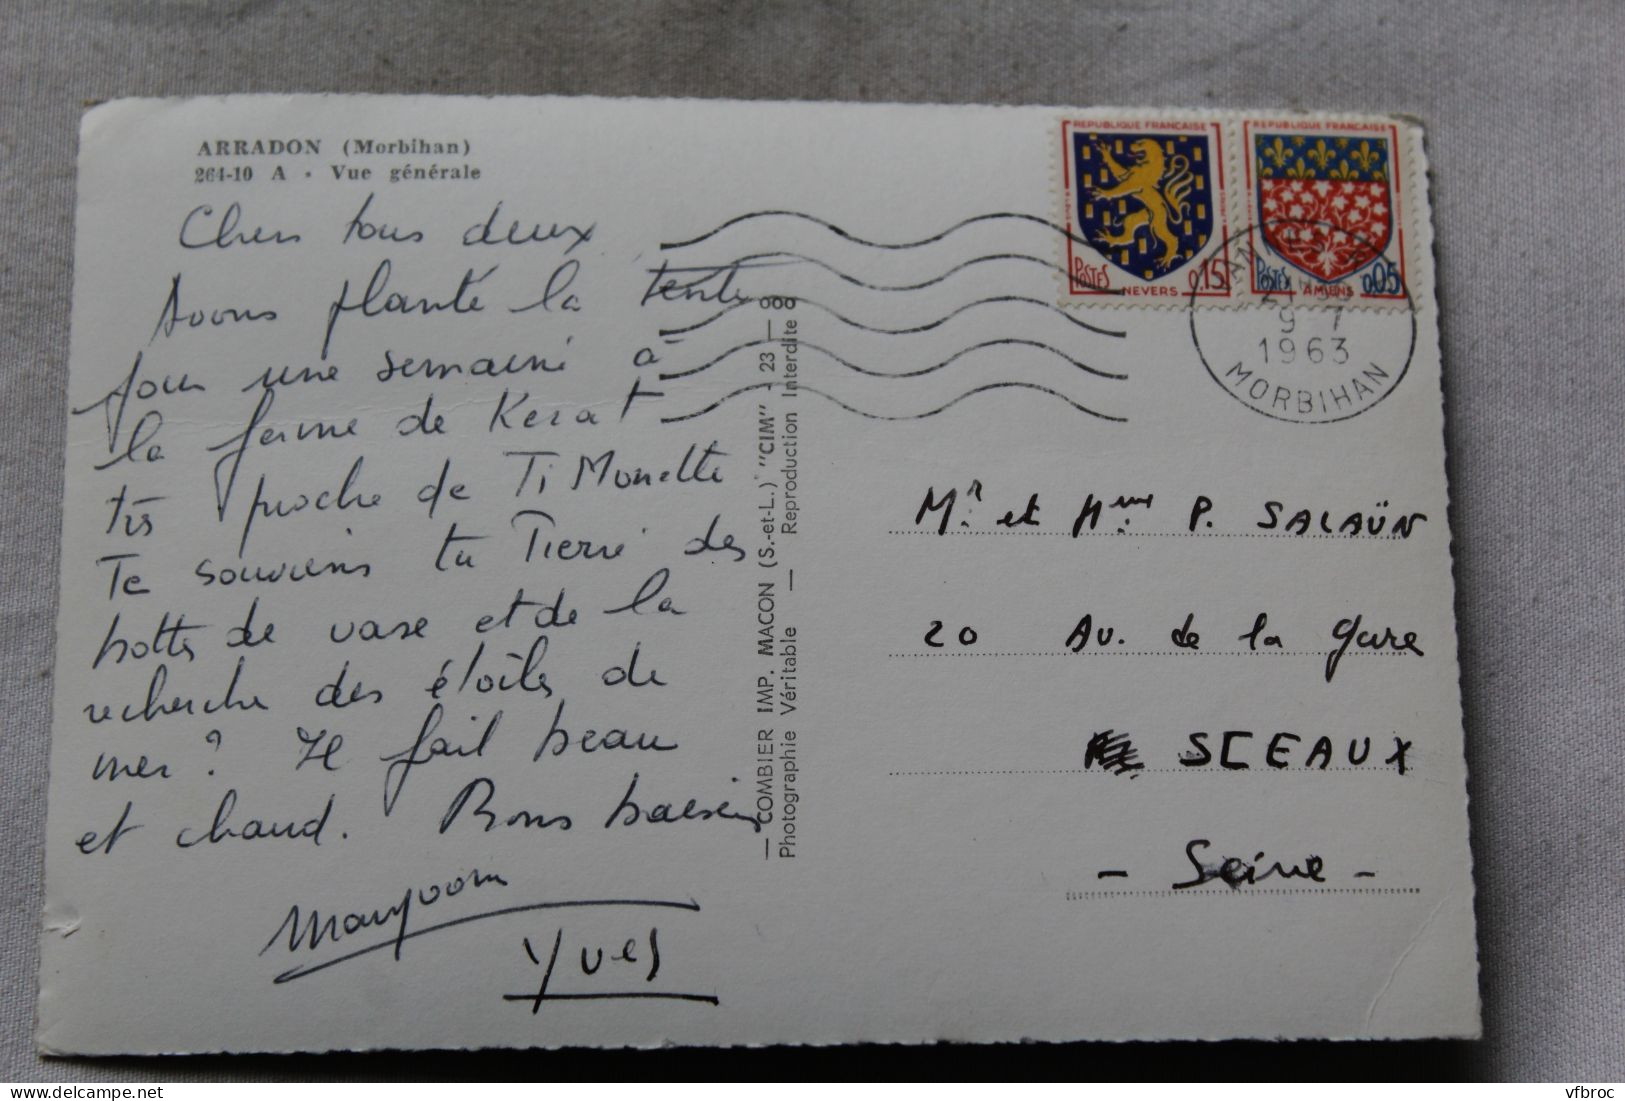 ARRADON (Morbihan)
264-10 A - Vue générale
Chers tous deux
Avons planté la tente
pour une semaine à
la ferme de Kerat
très proche de Ti Monette
Te souviens tu Pierre des
bottes de vase et de la
recherche des étoiles de
mer ? Il fait beau
et chaud. Bons baisers
Yves
— COMBIER IMP. MACON (S.-et-L.) "CIM" - 23 —
Photographie Véritable — Reproduction Interdite
REPUBLIQUE FRANÇAISE
POSTES NEVERS 0,15
REPUBLIQUE FRANÇAISE
POSTES AMIENS 0,05
9 - 7
1963
MORBIHAN
Mr. et Mme. P. SALAÜN
20 Av. de la gare
SCEAUX
- Seine -
vfbroc